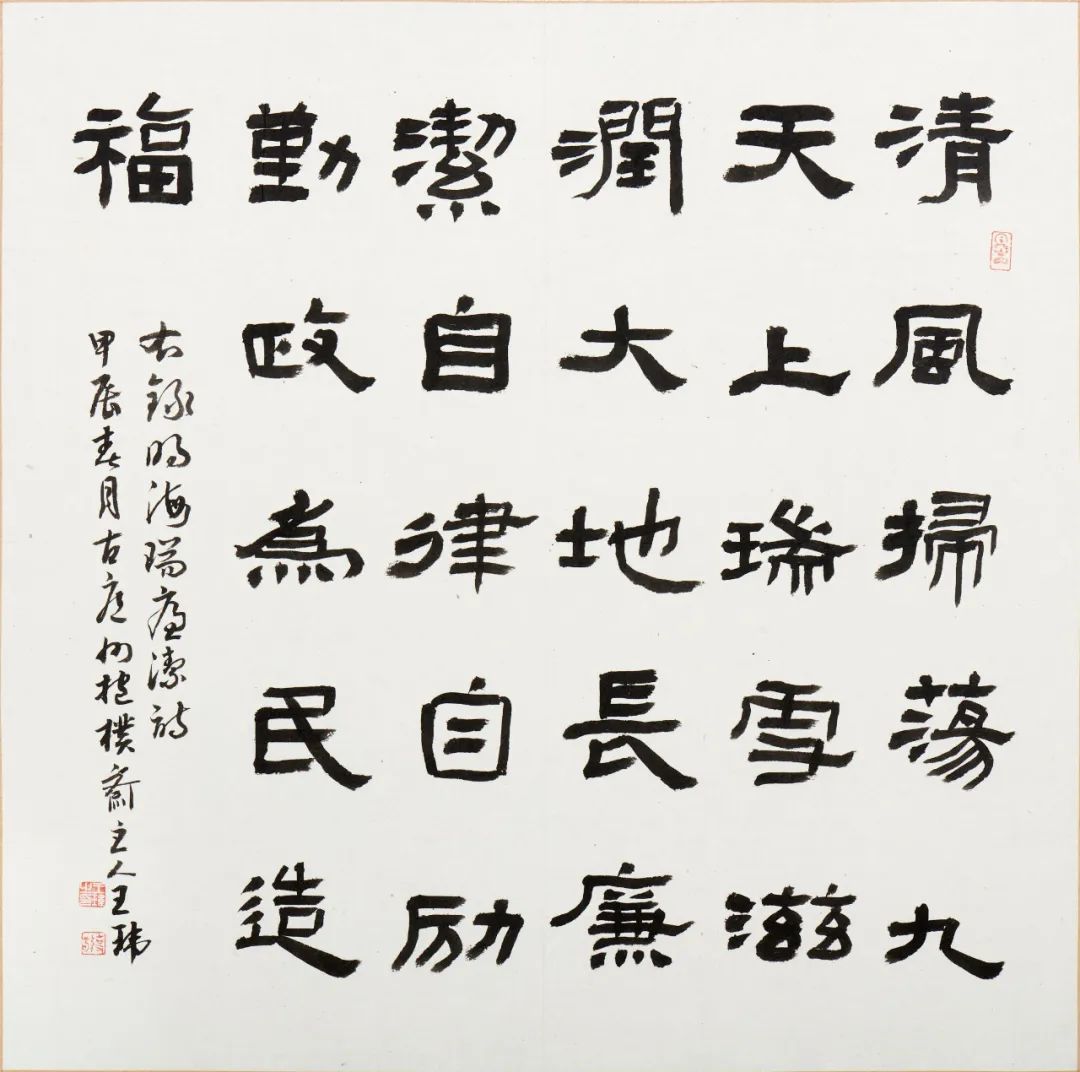 清風掃蕩九
天上瑞雪滋
潤大地長廉
潔自律自励
勤政為民造
福
右録明海瑞廉潔詩
甲辰春月古唐州抱樸齋主人王瑋